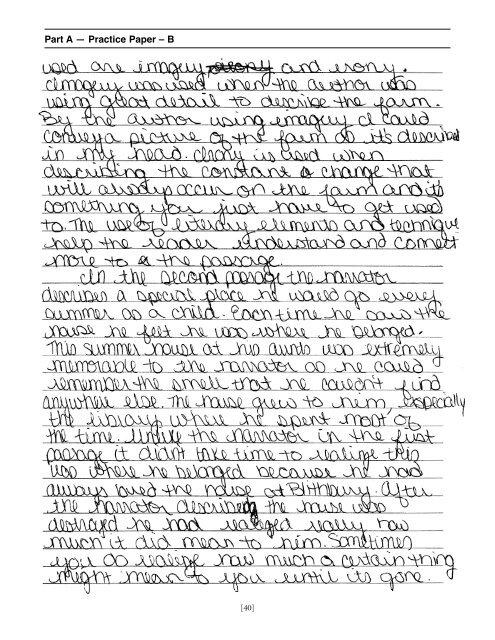 Part A — Practice Paper – B
used are imagery and irony.
Imagery was used when the author was
using great detail to describe the farm.
By the author using imagery I could
convey a picture of the farm as it's described
in my head. Irony is used when
describing the constant change that
will always occur on the farm and its
something you just have to get used
to. The use of literary elements and technique
help the reader understand and connect
more to the passage.
In the second passage the narrator
describes a special place he would go every
summer as a child. Each time he saw the
house he felt he was where he belonged.
This summer house at his aunts was extremely
memorable to the narrator as he could
remember the smell that he couldn't find
anywhere else. The house grew to him, especially
the library where he spent most of
the time. Unlike the narrator in the first
passage it didnt take time to realize this
was where he belonged because he had
always loved the house at Blithbury. After
the narrator described the house was
destroyed he had realized really how
much it did mean to him. Sometimes
you do realize how much a certain thing
might mean to you until its gone.
[40]